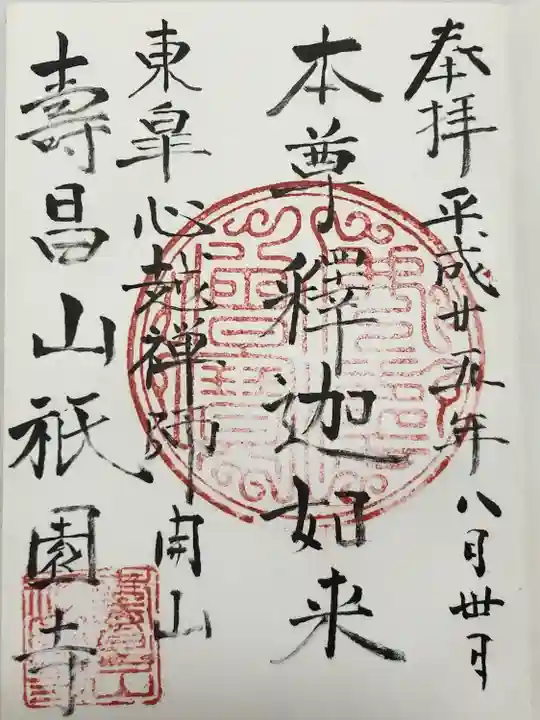 奉拝 平成廿五年八月卅日
本尊釋迦如来
東皐心越禅師開山
壽昌山祇園寺